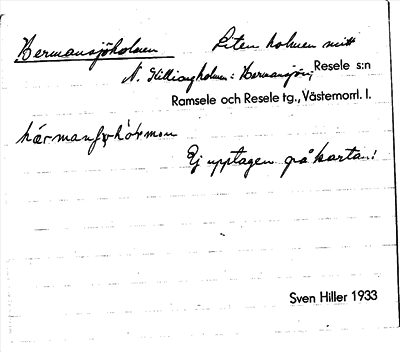 Hermansjöholmen Liten holme mitt
N. Hällingholmen: Hermansjön; Resele s:n
Ramsele och Resele tg., Västernorrl. l.
Ej upptagen på kartan!
Sven Hiller 1933